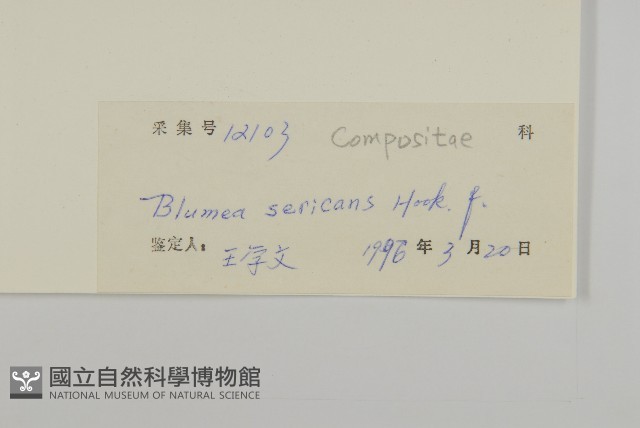 采集号 12103 Compositae 科
Blumea sericans Hook. f.
鉴定人: 王学文 1996 年 3 月 20 日
國立自然科學博物館
NATIONAL MUSEUM OF NATURAL SCIENCE